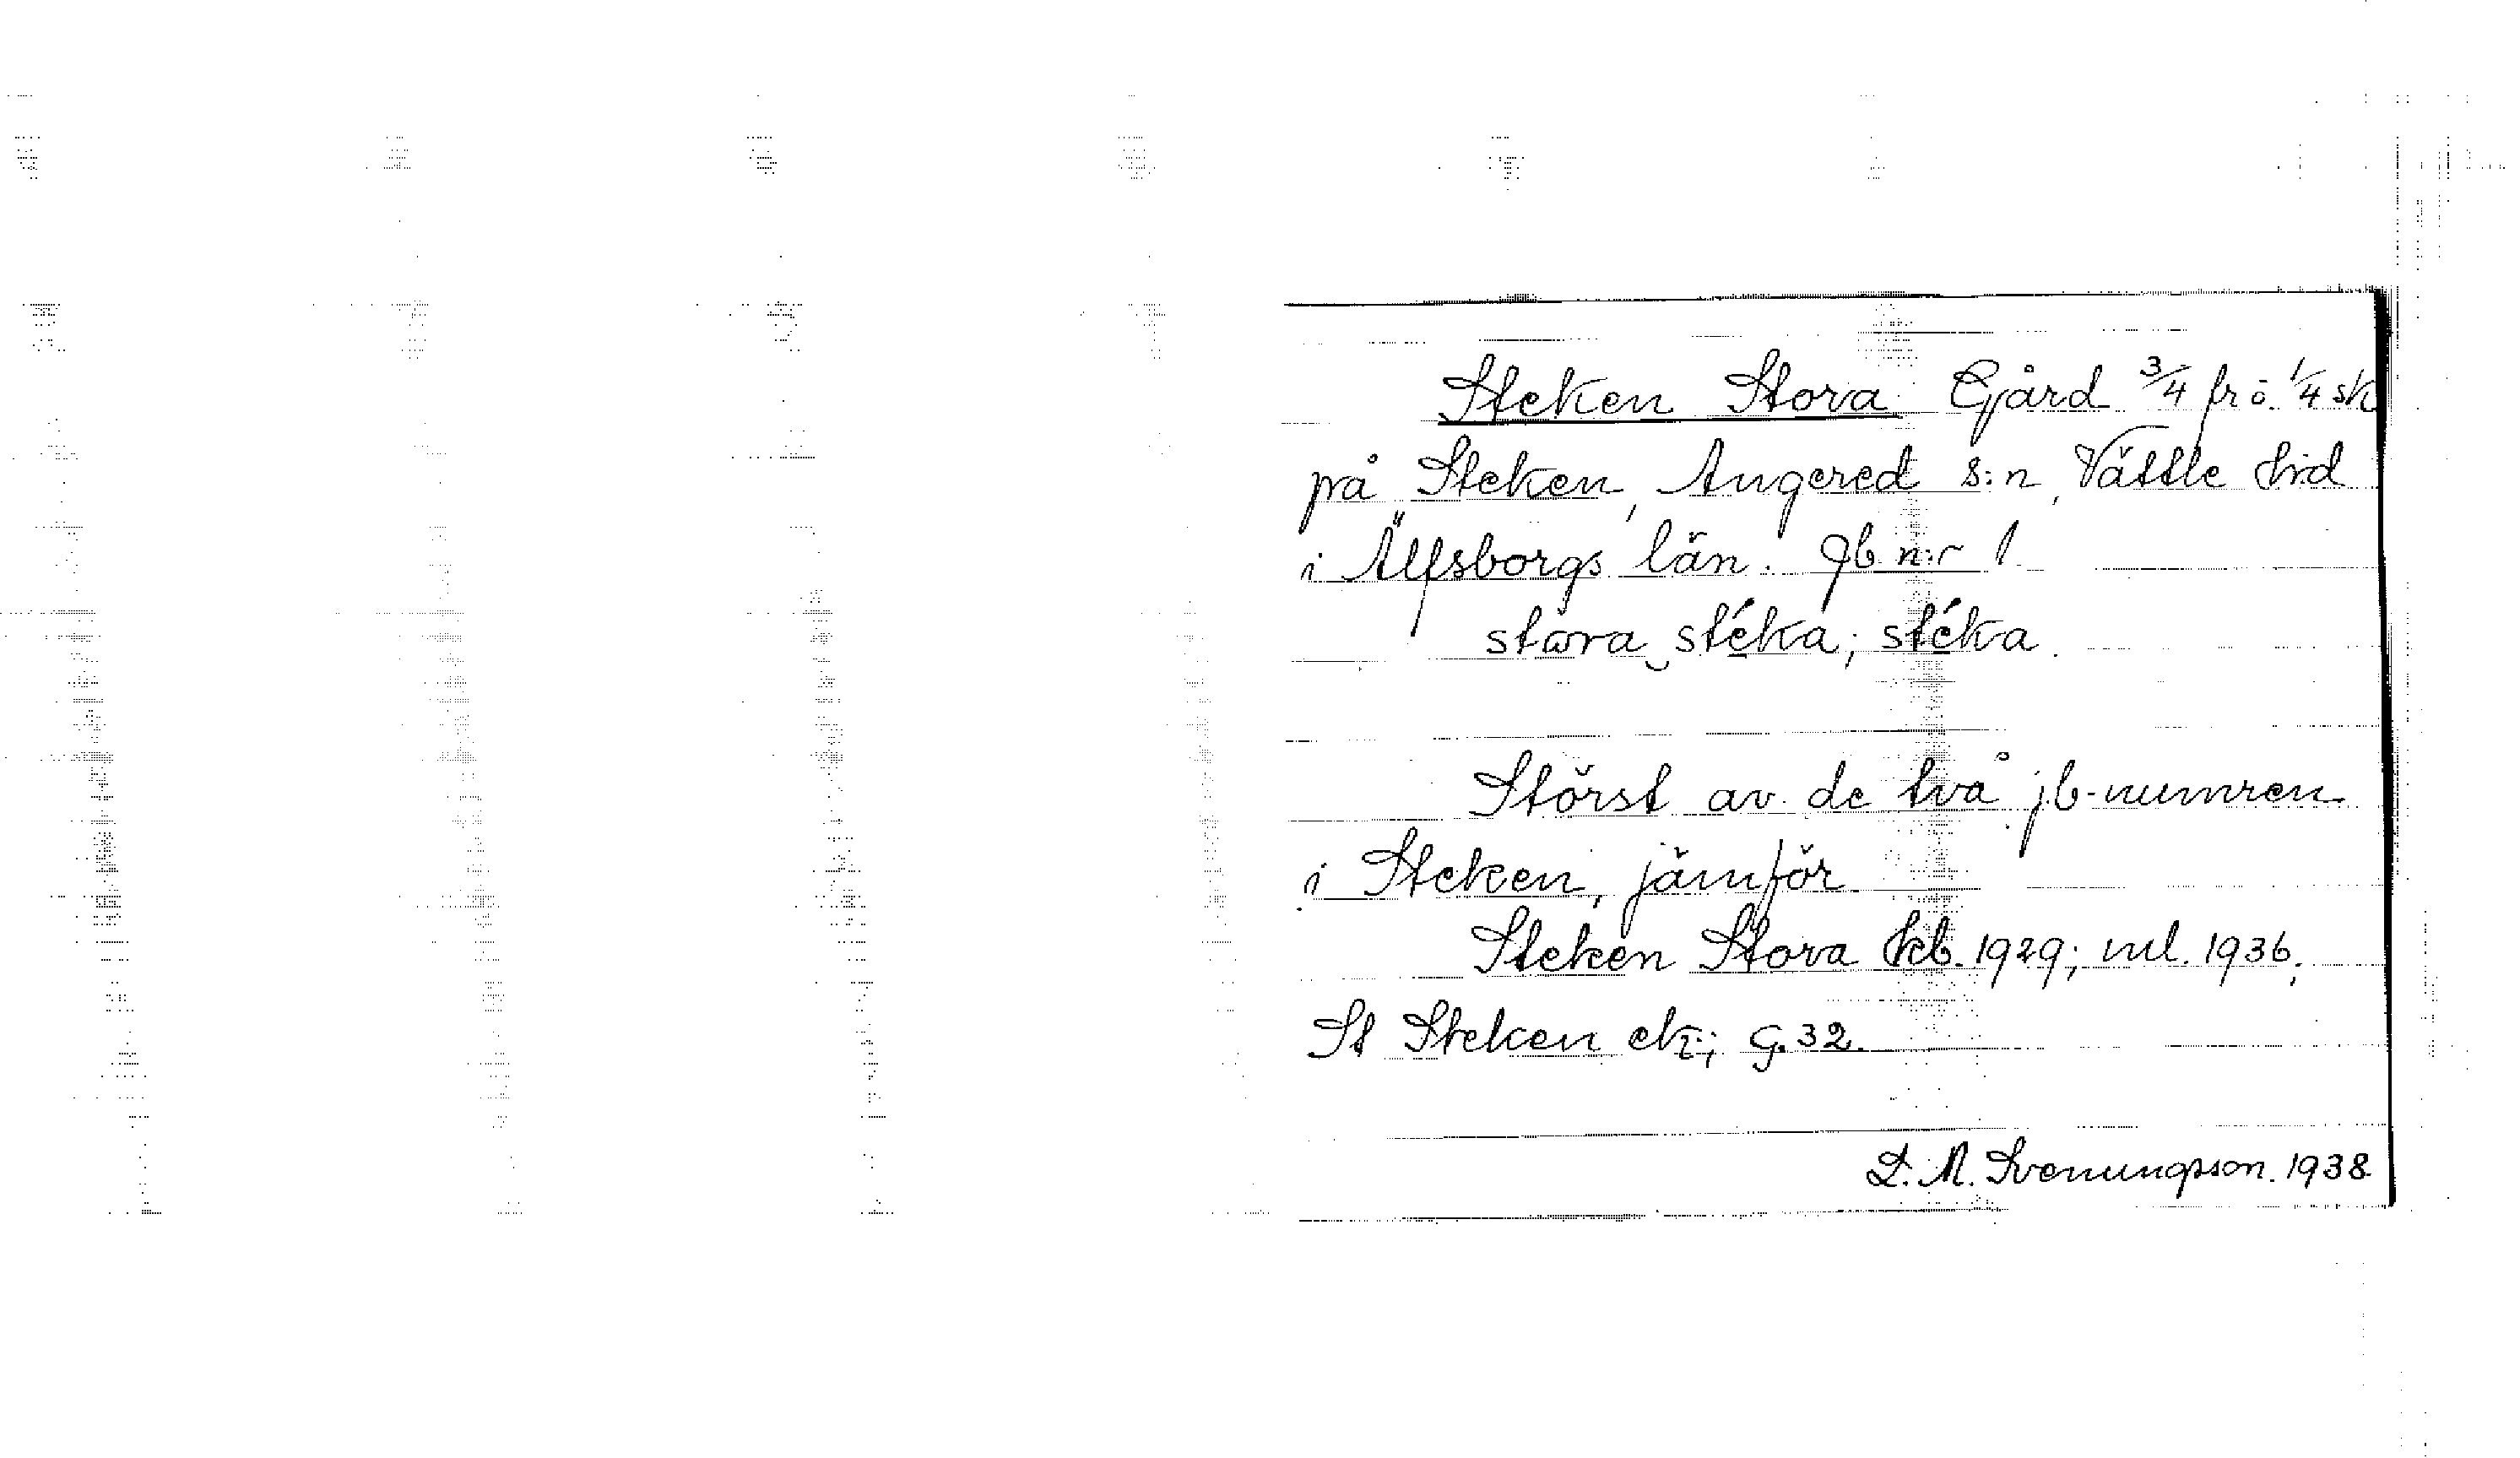 Steken Stora Gård 3/4 fr ö. 1/4 sk
på Steken, Angered s:n, Vättle hrd
i Älfsborgs län. Jb n:r 1
stωra stéka; stéka.
Störst av de två jb-numren
i Steken, jämför
Steken Stora kb. 1929; ml. 1936,
St Steken ek; G. 32.
L. M. Svenungsson. 1938